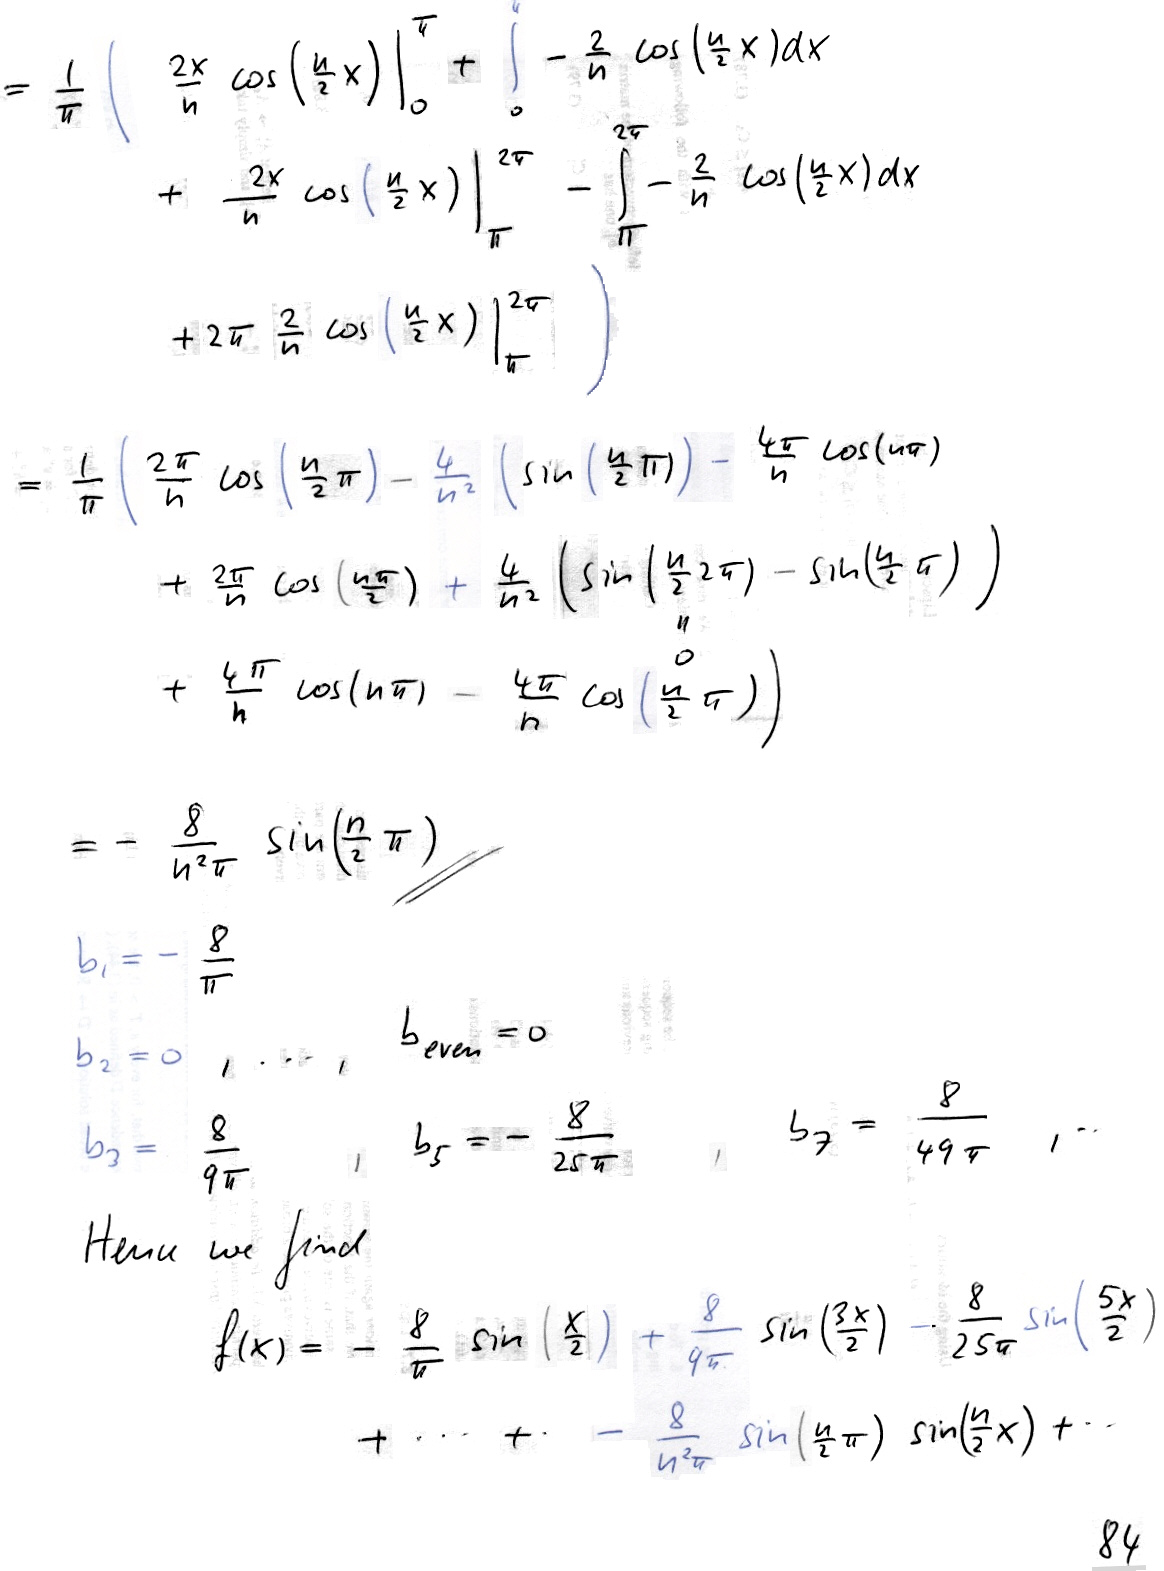 = 1/π ( 2x/n cos(n/2 x) |_0^π + ∫_0^π - 2/n cos(n/2 x)dx
+ - 2x/n cos(n/2 x) |_π^2π - ∫_π^2π - 2/n cos(n/2 x)dx
+ 2π 2/n cos(n/2 x) |_π^2π )
= 1/π ( 2π/n cos(n/2 π) - 4/n² (sin(n/2 π)) - 4π/n cos(nπ)
+ 2π/n cos(nπ/2) + 4/n² (sin(n/2 2π) - sin(n/2 π))
"
0
+ 4π/n cos(nπ) - 4π/n cos(n/2 π))
= - 8/n²π sin(n/2 π)
b₁ = - 8/π
b₂ = 0 , ..., b_even = 0
b₃ = 8/9π , b₅ = - 8/25π , b₇ = 8/49π , ..
Hence we find
f(x) = - 8/π sin(x/2) + 8/9π sin(3x/2) - 8/25π sin(5x/2)
+ ... + . - 8/n²π sin(n/2 π) sin(n/2 x) + ...
84